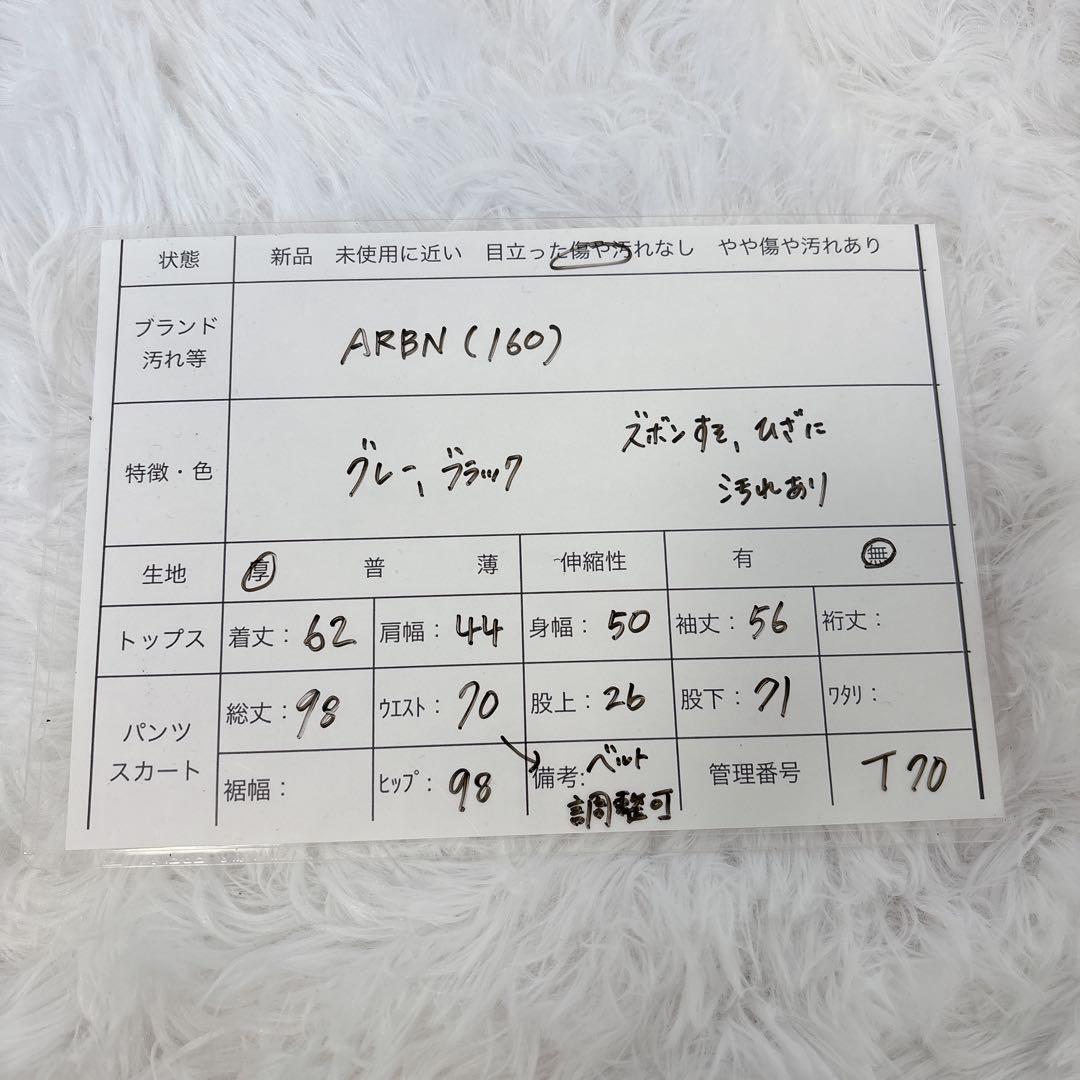 状態 新品 未使用に近い 目立った傷や汚れなし やや傷や汚れあり
ブランド
汚れ等
ARBN (160)
特徴・色
グレー、ブラック
ズボンすそ、ひざに
汚れあり
生地 厚 普 薄 伸縮性 有 無
トップス 着丈:62 肩幅:44 身幅:50 袖丈:56 裄丈:
パンツ
スカート
総丈:98 ウエスト:70 股上:26 股下:71 ワタリ:
裾幅: ヒップ:98 備考:ベルト
調整可
管理番号 T70